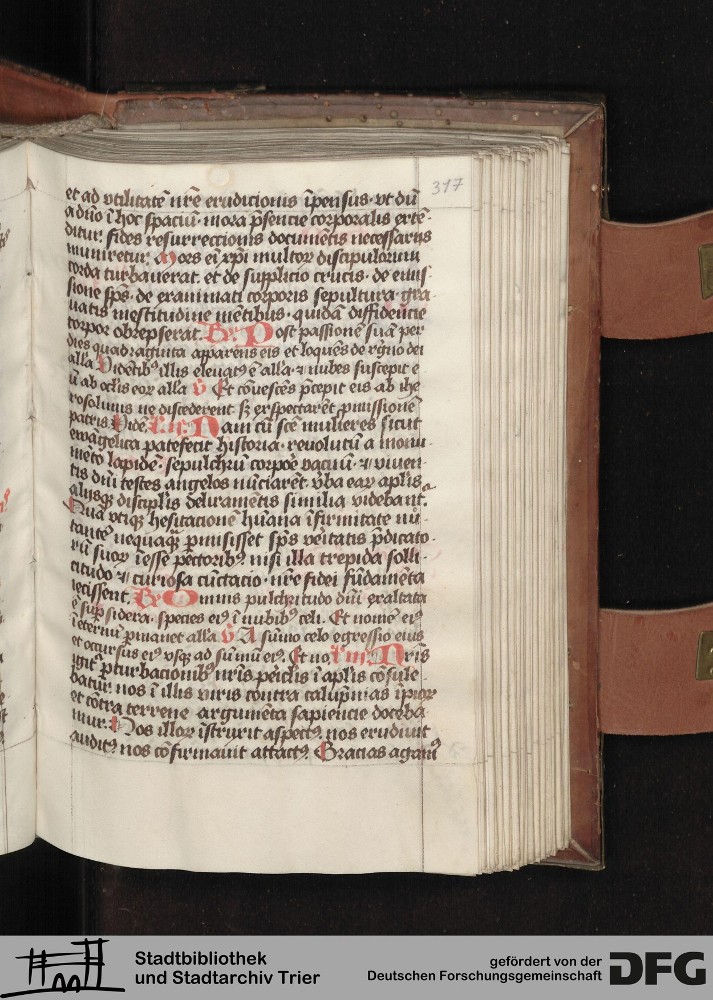 317
et ad vtilitatē nr̄e erudicionis īpensus · vt dū
a dn̄o ī hoc spaciū · mora p̄sencie corporalis extē-
ditur: fides resurreccionis documētis necessarijs
muniretur. Mors eī xp̄i multoꝝ discipulorum
corda turbauerat · et de supplicio crucis · de emis-
sione sp̄s · de exanimati corporis sepultura · gra-
uatis mestitudine mētibus · quidā diffidēcie
torpor obrepserat. Rx Post passionē suā per
dies quadraginta apparens eis et loquēs de regno dei
alla Vidētibꝰ illis eleuatꝰ ē alla · ⁊ nubes suscepit e
ū ab oclis eoꝝ alla V Et cōuescēs p̄cepit eis ab ihe
rosolimis ne discederent · sꝫ exspectarēt ꝓmissionē
patris. Vidē. Nam cū sc̄e mulieres sicut
ewāgelica patefecit historia · reuolutū a monu-
mēto lapidē · sepulchrū corpoē vacuū · ⁊ viuen-
tis dn̄i testes angelos nūciarēt · v̄ba eaꝝ apl̄is
alijsqꝫ discipl̄is deliramētis similia videbant.
Quā vtiqꝫ hesitacionē hūana īfirmitate nū-
tantē nequaqꝫ ꝑmisisset sp̄s veritatis p̄dicato-
rū suoꝝ īesse pectoribꝰ · nisi illa trepida solli-
citudo ⁊ curiosa cūctacio · nr̄e fidei fūdamēta
iecissent. Rx Omnis pulchritudo dn̄i exaltata
ē suꝑ sidera · species eiꝰ ī nubibꝰ celi. Et nomē eiꝰ
ī eternū ꝑmanet alla V A sūmo celo egressio eius
et occursus eiꝰ vsqꝫ ad sūmū eiꝰ. Et no Nr̄is
igit̄ ꝑturbacionibꝰ nr̄is peiclis ī apl̄is cōsule-
batur · nos ī illis viris contra calūpnias īpioꝝ
et cōtra terrene argumēta sapiencie doceba-
mur. Nos illoꝝ īstruxit aspectꝰ · nos erudiuit
auditꝰ nos cōfirmauit attactꝰ. Gracias agamꝰ
Stadtbibliothek
und Stadtarchiv Trier
gefördert von der
Deutschen Forschungsgemeinschaft
DFG